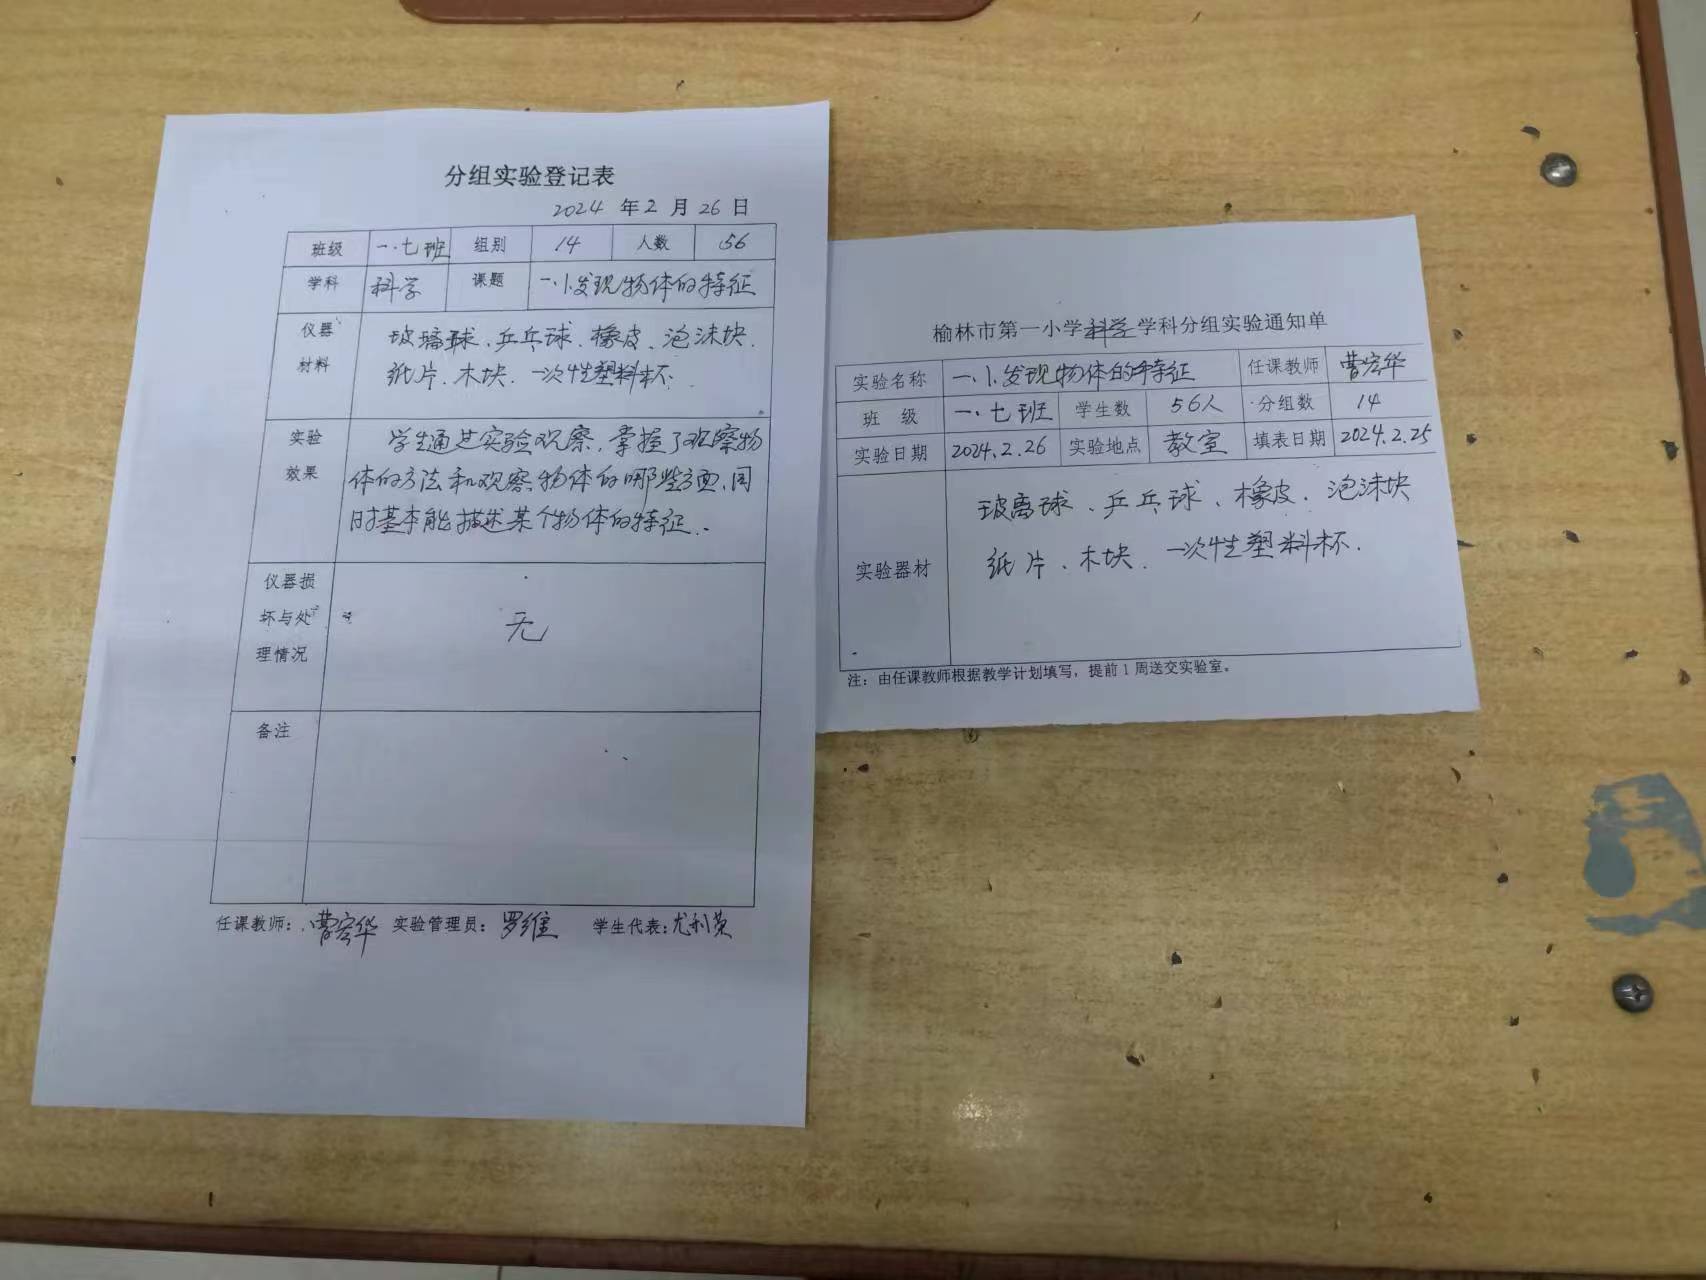 分组实验登记表
2024 年 2 月 26 日
班级 一.七班 组别 14 人数 56
学科 科学 课题 一.1.发现物体的特征
仪器材料 玻璃球、乒乓球、橡皮、泡沫块、
纸片、木块、一次性塑料杯.
实验效果 学生通过实验观察,掌握了观察物
体的方法和观察物体的哪些方面,同
时基本能描述某个物体的特征.
仪器损坏与处理情况 无
备注
任课教师: 曹宏华 实验管理员: 罗维 学生代表: 尤利荣
榆林市第一小学科学学科分组实验通知单
实验名称 一.1.发现物体的特征 任课教师 曹宏华
班 级 一.七班 学生数 56人 分组数 14
实验日期 2024.2.26 实验地点 教室 填表日期 2024.2.25
实验器材 玻离球、乒乓球、橡皮、泡沫块
纸片、木块、一次性塑料杯.
注: 由任课教师根据教学计划填写, 提前 1 周送交实验室。